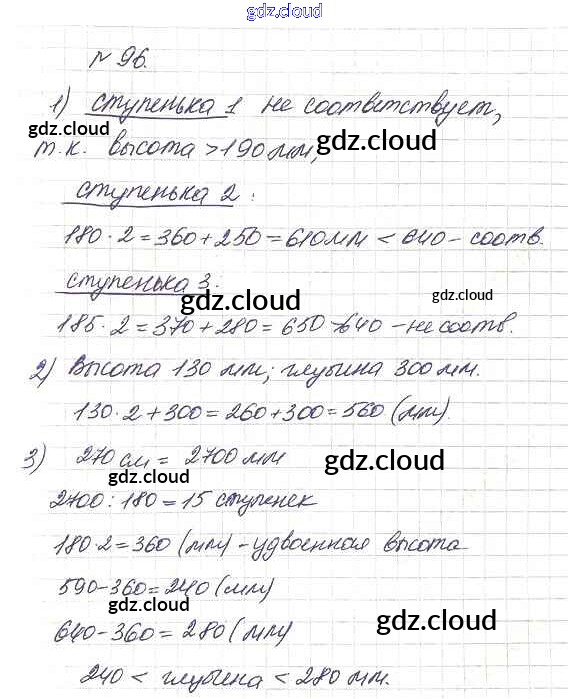 gdz.cloud
№ 96.
1) ступенька 1 не соответствует,
gdz.cloud
gdz.cloud
т.к. высота >190мм,
ступенька 2:
180·2=360+250=610мм < 640- соотв.
ступенька 3:
gdz.cloud
gdz.cloud
185·2=370+280=650>640 -не соотв.
2) Высота 130 мм; глубина 300 мм.
130·2+300=260+300=560 (мм).
3) 270 см = 2700 мм
gdz.cloud
gdz.cloud
2700:180=15 ступенек
180·2=360 (мм) -удвоенная высота
590-360=240 (мм)
gdz.cloud
gdz.cloud
640-360=280 (мм)
240 < глубина < 280 мм.